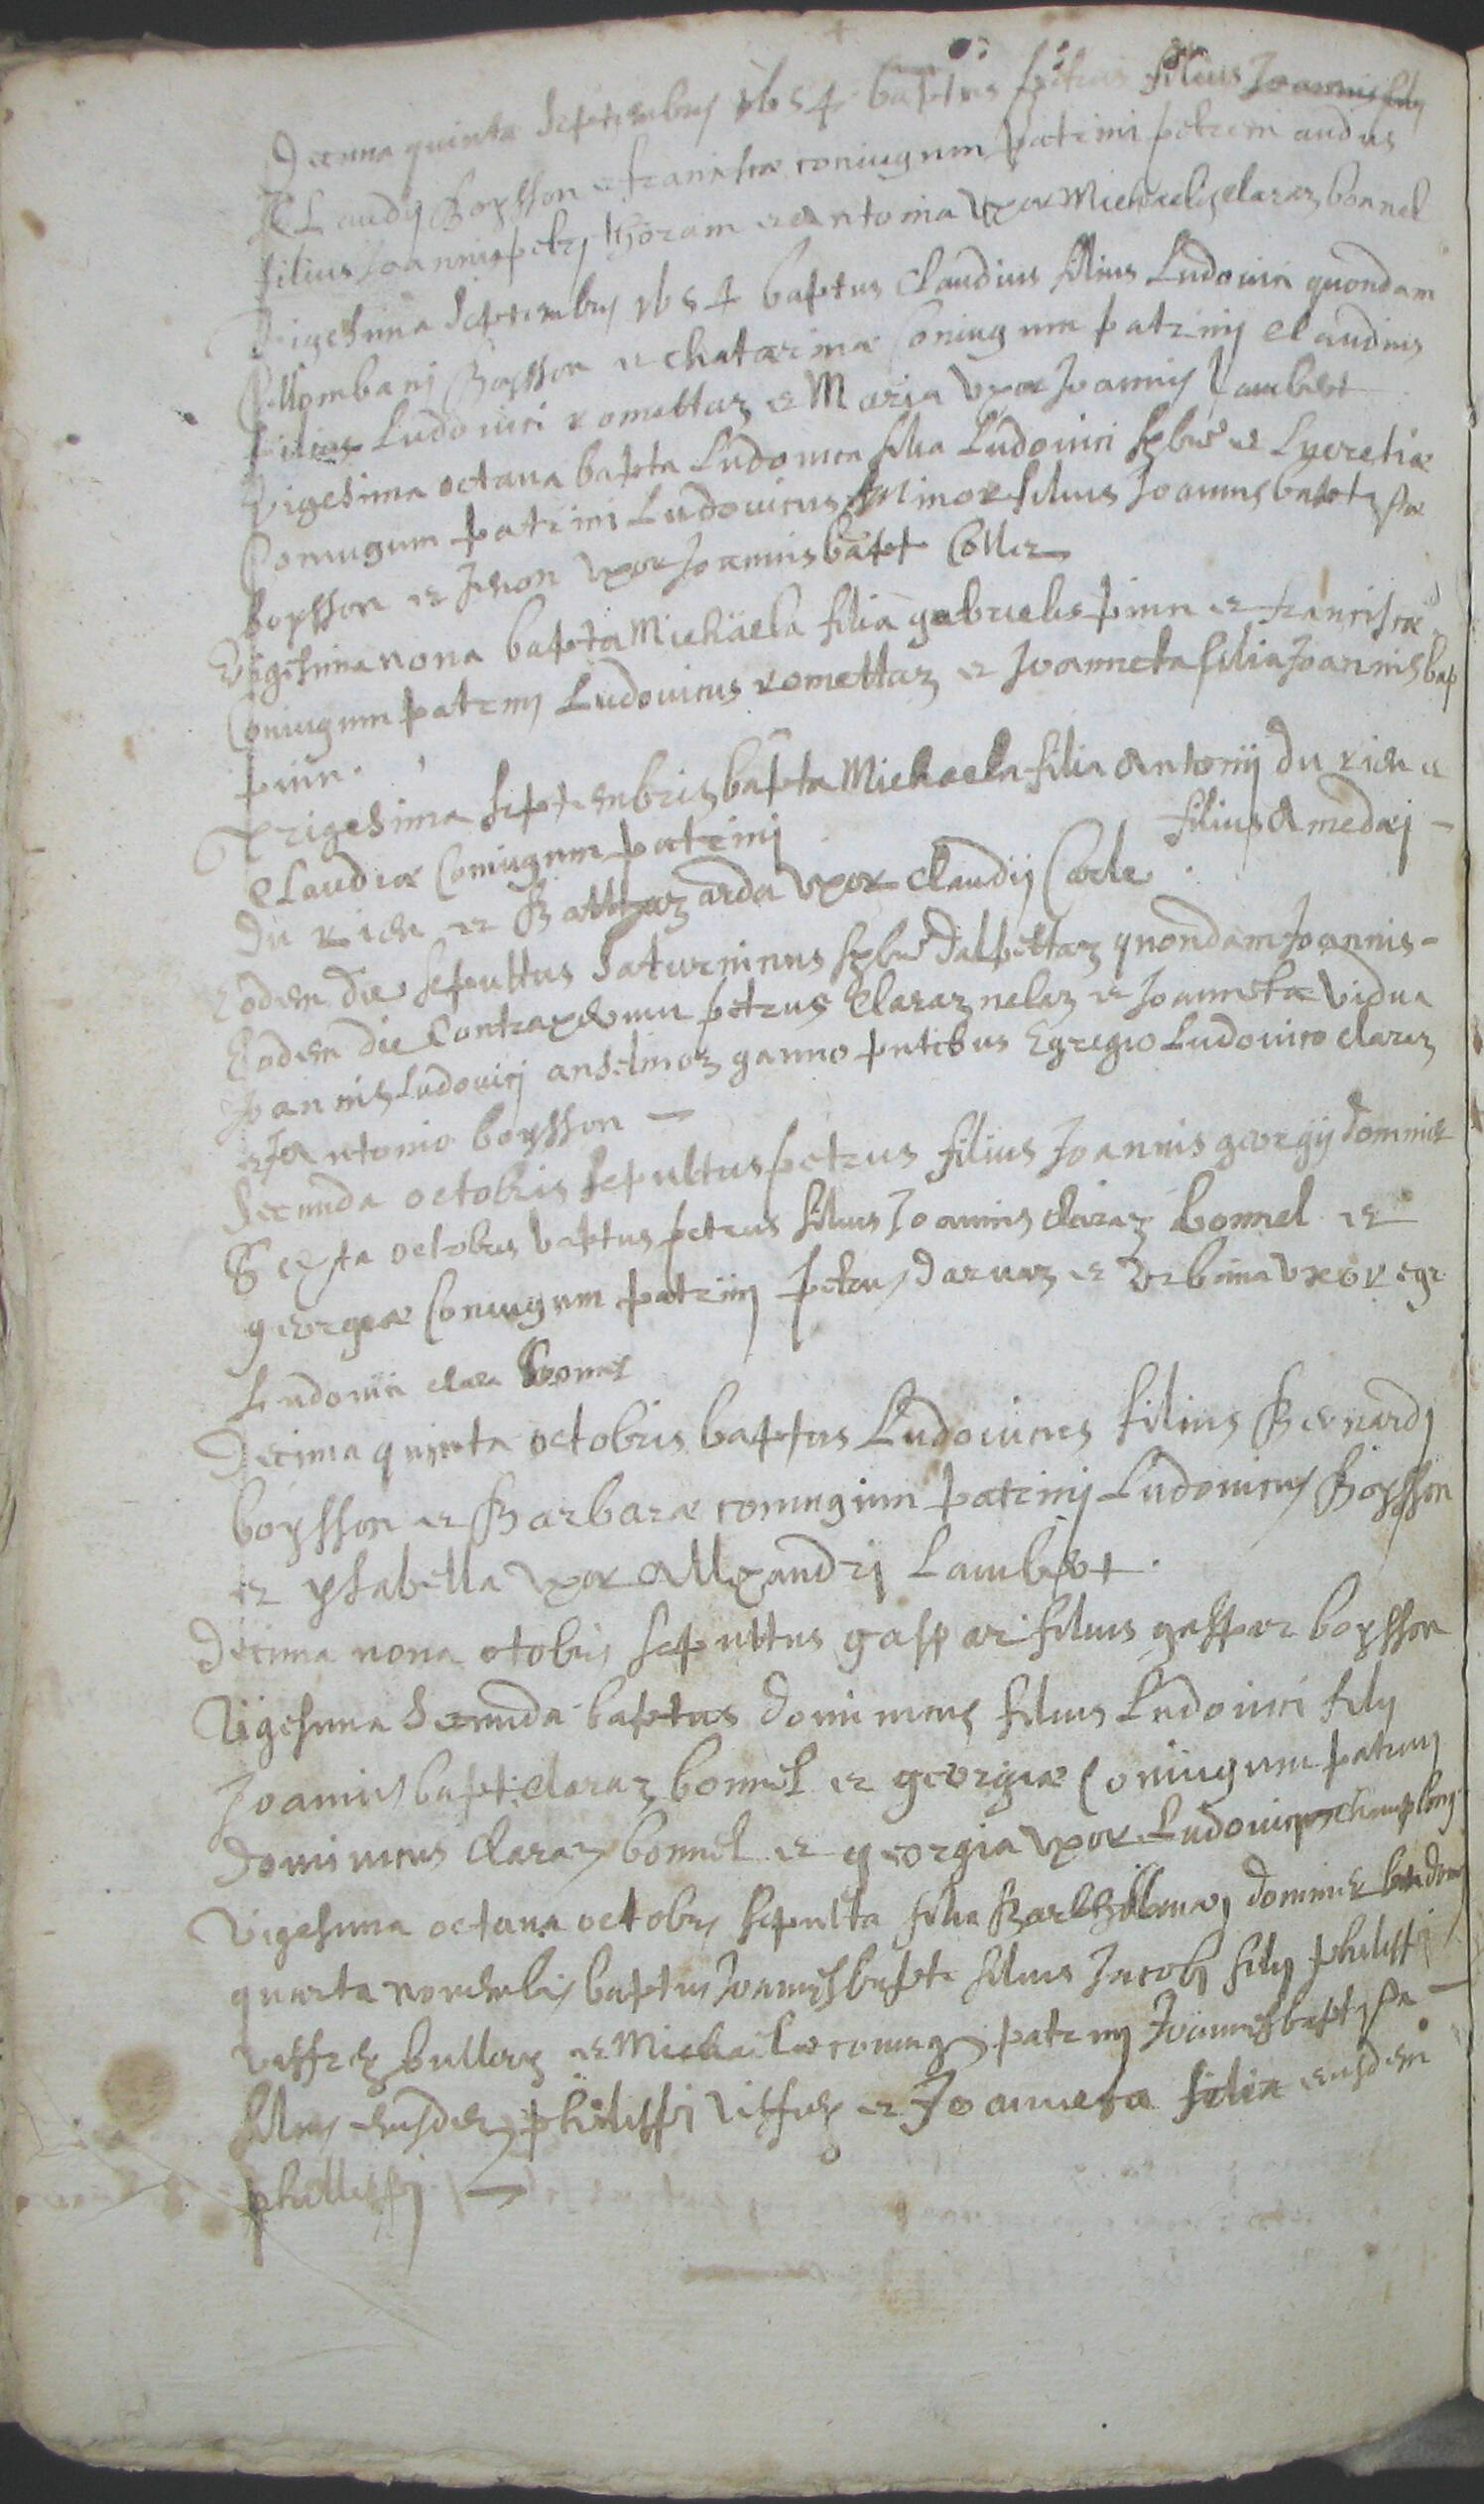 Decima quinta septembris 1654 baptus petrus filius Joannis filij
Claudij Boysson et franciscæ coniugum patrini petrus audus
filius Joannis petri et Antonia uxor Michaelis claraz bonnel
Vigesima septembris 1654 baptus Claudius filius Ludovici quondam
Collombani Boysson et chatarinæ Coniugum patrinij claudius
filius Ludovici romettaz et Maria uxor Joannis Lambert
Vigesima octava bapta Ludovica filia Ludovici et Lucretiæ
Coniugum patrini Ludovicus Minor filius Joannis baptistæ
boysson et uxor Joannis bapt Coller
Vigesima nona bapta Michäela filia gabrielis pinn et franciscæ
Coniugum patrinij Ludovicus romettaz et Joanneta filia Joannis bap
pinn.
trigesima septembris bapta Michaela filia Antonij du rieu et
Claudiæ Coniugum patrinij filius Amedæi -
du rieu et Baltazarda uxor claudij Carle.
Eodem die sepultus Saturninus dalpettaz quondam Joannis -
Eodem die Contraxerunt petrus Claraz nelaz et Joanneta vidua
Joannis Ludovici anselmoz ganno pntibus Egregio Ludovico claraz
et Antonio boysson -
Secunda octobris sepultus petrus filius Joannis georgij dominici
Sexta octobris baptus petrus filius Joannis claraz bonnel et
georgiæ Coniugum patrinij petrus darnaz et Urbina uxor egr
Ludovici claraz bonnel
Decima quinta octobris baptus Ludovicus filius Bernardj
boysson et Barbaræ coniugum patrinij Ludovicus Boysson
et ysabella uxor Allexandrj Lambert.
Decima nona otobris sepultus gaspar filius gaspar boysson
Vigesima Secunda baptus dominicus filius Ludovici filij
Joannis bapt: claraz bonnel et georgiæ Coniugum patrinij
dominicus claraz bonnel et georgia uxor Ludovici champlong
Vigesima octava octobris sepulta filia Bartholomæj dominici
quarta novembris baptus Joannes bapte filius Jacobj filij philippj
veffrey bullioz et Michaelæ coniug patrinij Joannes baptista -
filius eiusdem philippj veffrey et Joanneta filia eiusdem
phillippj -